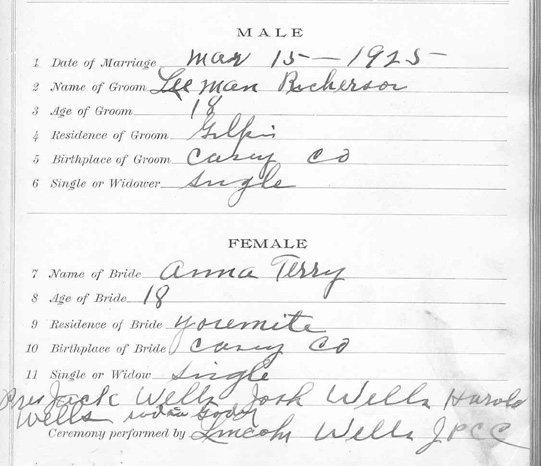 MALE
1 Date of Marriage Mar 15 - 1925
2 Name of Groom Leeman Rickerson
3 Age of Groom 18
4 Residence of Groom Gilpin
5 Birthplace of Groom Casey Co
6 Single or Widower Single
FEMALE
7 Name of Bride Anna Terry
8 Age of Bride 18
9 Residence of Bride Yosemite
10 Birthplace of Bride Casey Co
11 Single or Widow Single
Pres Jack Wells Josh Wells Harold
Wells
Ceremony performed by Lincoln Wells JPCC